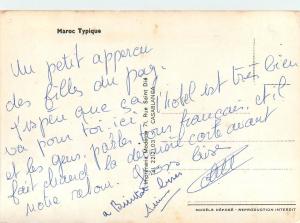 Maroc Typique
Un petit apperçu
des filles du pays.
J'espère que ça
va pour toi ici l'hotel est très bien
et les gens parlent tous français. et il
fait chaud la dernière carte avant
notre retour. Gross bise
a Bientôt
Rue Saint Dié
CASABLANCA
MODÈLE DÉPOSÉ - REPRODUCTION INTERDITE